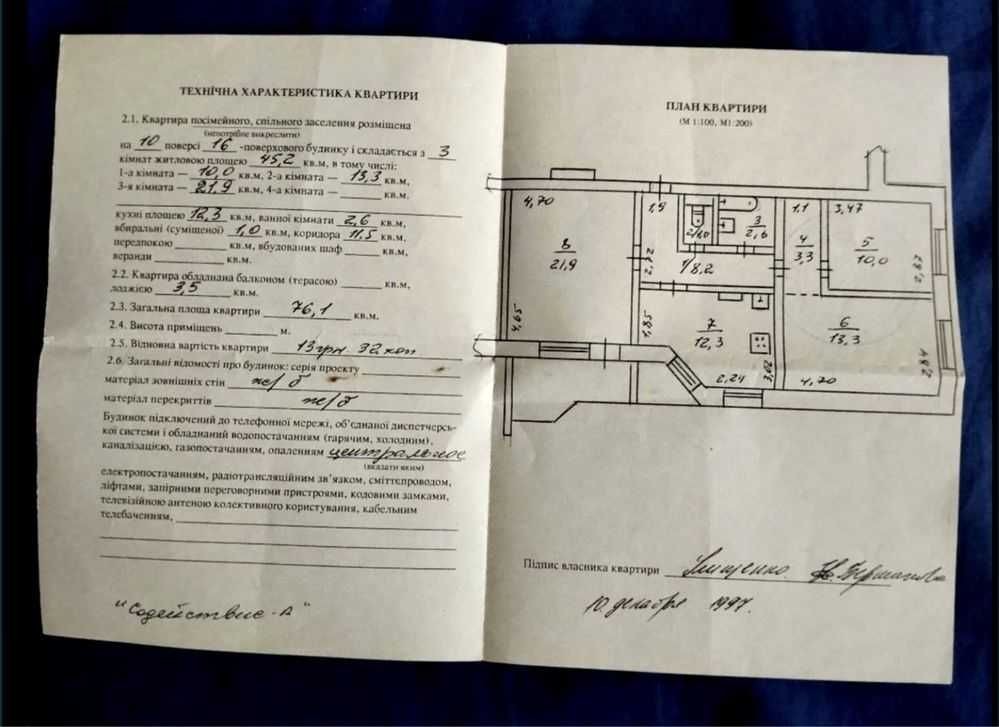 ТЕХНІЧНА ХАРАКТЕРИСТИКА КВАРТИРИ
2.1. Квартира посімейного, спільного заселення розміщена
(непотрібне викреслити)
на 10 поверсі 16 -поверхового будинку і складається з 3
кімнат житловою площею 45,2 кв.м, в тому числі:
1-а кімната — 10,0 кв.м, 2-а кімната — 13,3 кв.м,
3-я кімната — 21,9 кв.м, 4-а кімната — кв.м,
кухні площею 12,3 кв.м, ванної кімнати 2,6 кв.м,
вбиральні (суміщеної) 1,0 кв.м, коридора 11,5 кв.м,
передпокою кв.м, вбудованих шаф кв.м,
веранди кв.м.
2.2. Квартира обладнана балконом (терасою) кв.м,
лоджією 3,5 кв.м.
2.3. Загальна площа квартири 76,1 кв.м.
2.4. Висота приміщень м.
2.5. Відновна вартість квартири 13 грн 32 коп
2.6. Загальні відомості про будинок: серія проекту
матеріал зовнішніх стін ж/б
матеріал перекриттів ж/б
Будинок підключений до телефонної мережі, об'єднаної диспетчерсь-
кої системи і обладнаний водопостачанням (гарячим, холодним),
каналізацією, газопостачанням, опаленням центральное
(вказати яким)
електропостачанням, радіотрансляційним зв'язком, сміттєпроводом,
ліфтами, запірними переговорними пристроями, кодовими замками,
телевізійною антеною колективного користування, кабельним
телебаченням,
"Содействие-А"
ПЛАН КВАРТИРИ
(М 1:100, М1:200)
4,70
1,9
1,1
3,47
3
2,6
2/1,0
8
21,9
4
3,3
5
10,0
2,87
2,72
1/8,2
4,65
1,85
7
12,3
6
13,3
2,84
3,02
2,24
4,70
Підпис власника квартири
10 декабря 1997.